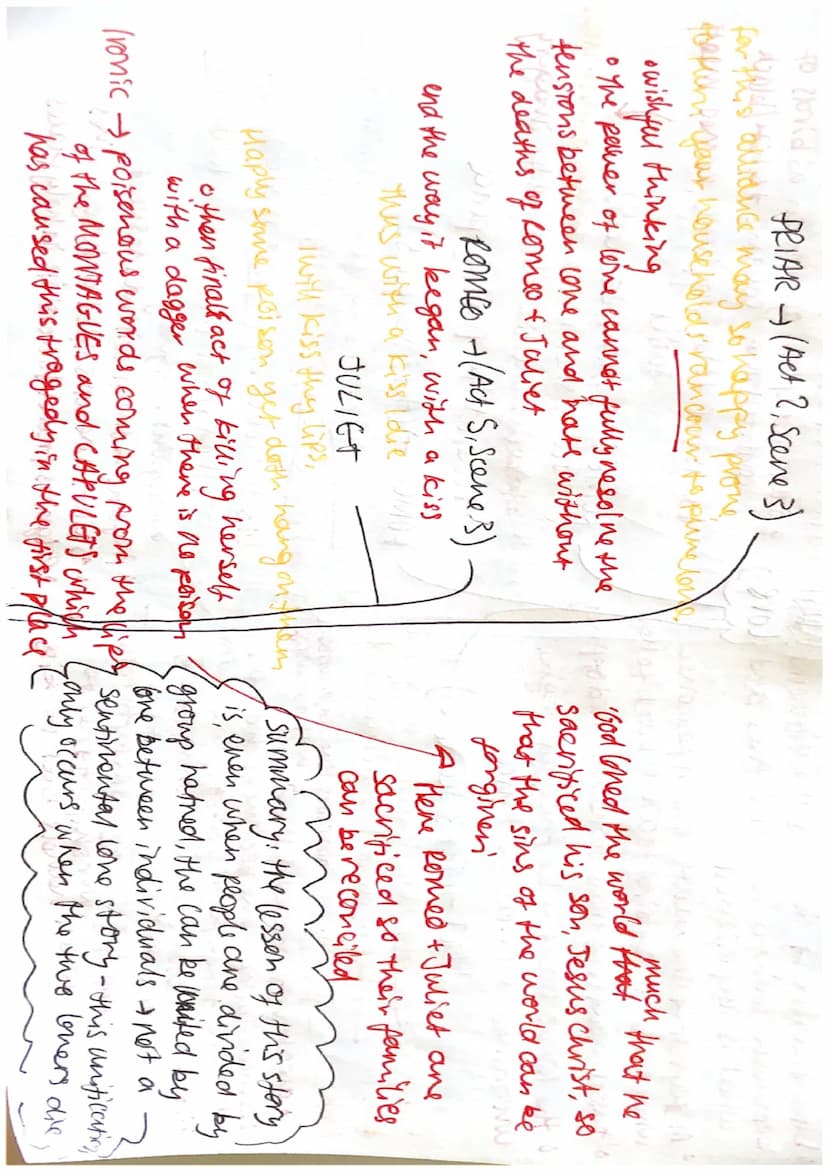 FRIAR → (Act 2, Scene 3)
for this alliance may so happy prove,
to turn your households rancour to pure love.
• wishful thinking
• the power of love cannot fully resolve the
tensions between love and hate without
the deaths of Romeo + Juliet
ROMEO → (Act 5, Scene 3)
end the way it began, with a kiss
thus with a kiss I die
JULIET
I will kiss thy lips,
Haply some poison yet doth hang on them
• then final act of killing herself
with a dagger when there is no poison
Ironic → poisonous words coming from the lips
of the MONTAGUES and CAPULETS which
has caused this tragedy in the first place
'God loved the world that much that he
sacrificed his son, Jesus Christ, so
that the sins of the world can be
forgiven'
Here Romeo + Juliet are
sacrificed so their families
can be reconciled
summary: the lesson of this story
is, even when people are divided by
group hatred, the can be united by
love between individuals → not a
sentimental love story - this unification
only occurs when the two lovers die